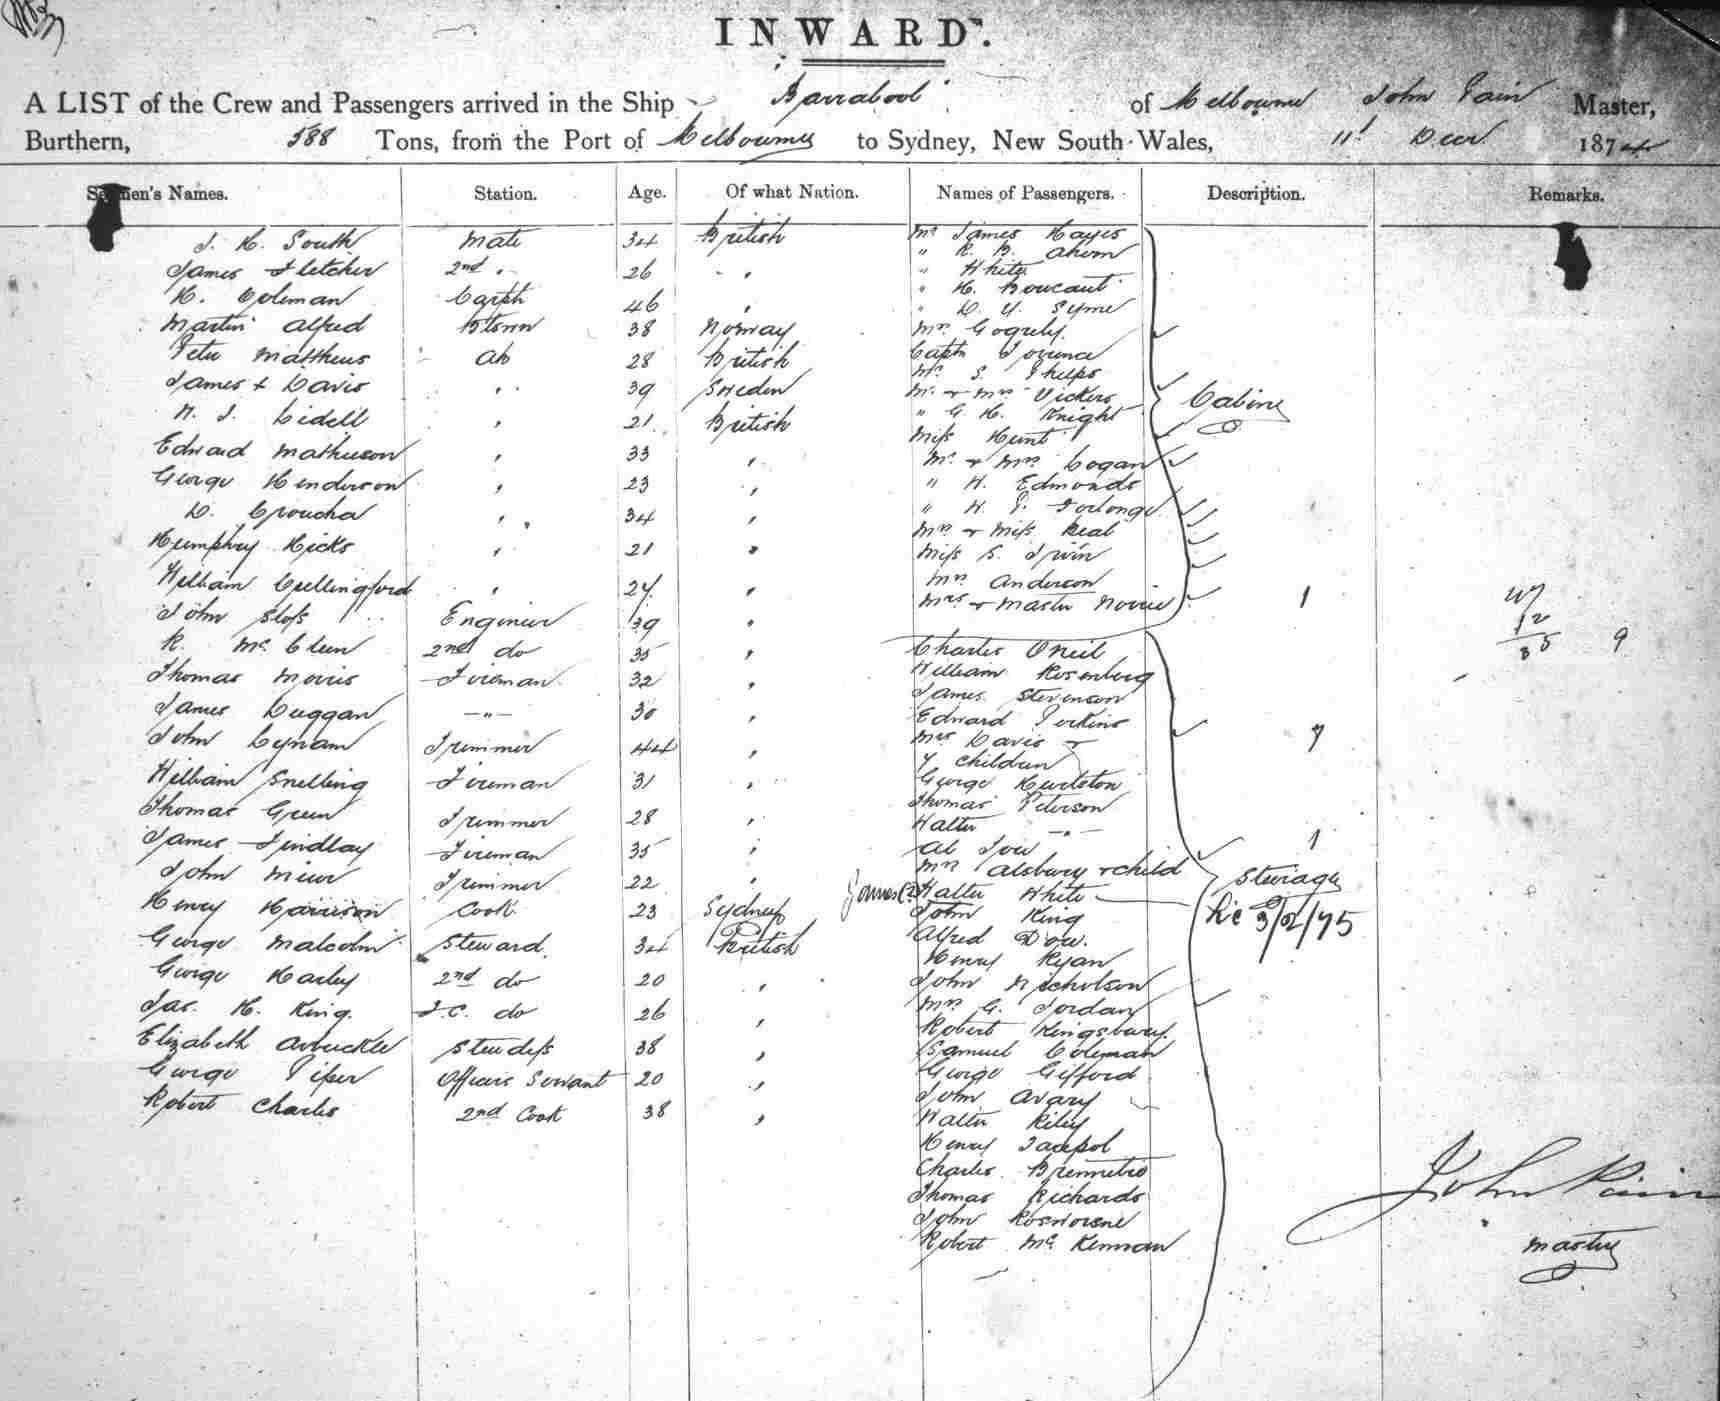 INWARD.
A LIST of the Crew and Passengers arrived in the Ship Barrabool of Melbourne John Pain Master,
Burthern, 588 Tons, from the Port of Melbourne to Sydney, New South Wales, 11t Decr 1874
Seamen's Names. Station. Age. Of what Nation. Names of Passengers. Description. Remarks.
J. H. South Mate 34 British
James Fletcher 2nd " 26 "
H. Coleman Carptr 46 "
Martin Alfred Btswn 38 Norway
Peter Matthews Ab 28 British
James Davis " 39 Sweden
W. J. Lidell " 21 British
Edward Mathieson " 33 "
George Henderson " 23 "
D. Croucha " 34 "
Humphrey Hicks " 21 "
William Cullingford " 24 "
John Sloss Engineer 39 "
R. Mc Cleen 2nd do 35 "
Thomas Morris Fireman 32 "
James Duggan —"— 30 "
John Lynam Trimmer 44 "
William Snelling Fireman 31 "
Thomas Green Trimmer 28 "
James Findlay Fireman 35 "
John Muir Trimmer 22 "
Henry Harrison Cook 23 Sydney
George Malcolm Steward 34 British
George Harley 2nd do 20 "
Jas. H. King F.C. do 26 "
Elizabeth Arbuckle Stewdess 38 "
George Piper Officers Servant 20 "
Robert Charles 2nd Cook 38 "
Mr James Hayes
" R. B. Ahern
" White
" H. Boucaut
" D. Y. Syme
Mrs
Captn
Mr. S. Phelps
Mr. & Mrs Vickers
" G. H. Knight
Miss Hunt
Mr. & Mrs Cogan
" H. Edmonds
" H. P. Forlonge
Mrs & Miss Beal
Miss S. Irvin
Mrs Anderson
Mrs & Master Norrie 1
Cabine
Charles Oneil
William Rosenberg
James Stevenson
Edward Perkins
Mrs Davis &
7 Children 7
George Hurlston
Thomas Peterson
Walter —"—
Ah Tow 1
Mrs Alsbury & child
Walter White
John King
Alfred Dow.
Henry Ryan
John Nicholson
Mrs G. Jordan
Robert Kingsbury.
Samuel Coleman
George Gifford
John Avary
Walter Riley
Henry
Charles
Thomas Richards
John
Robert Mc Kennan
Steerage
3/2/75
9
John Pain
Master